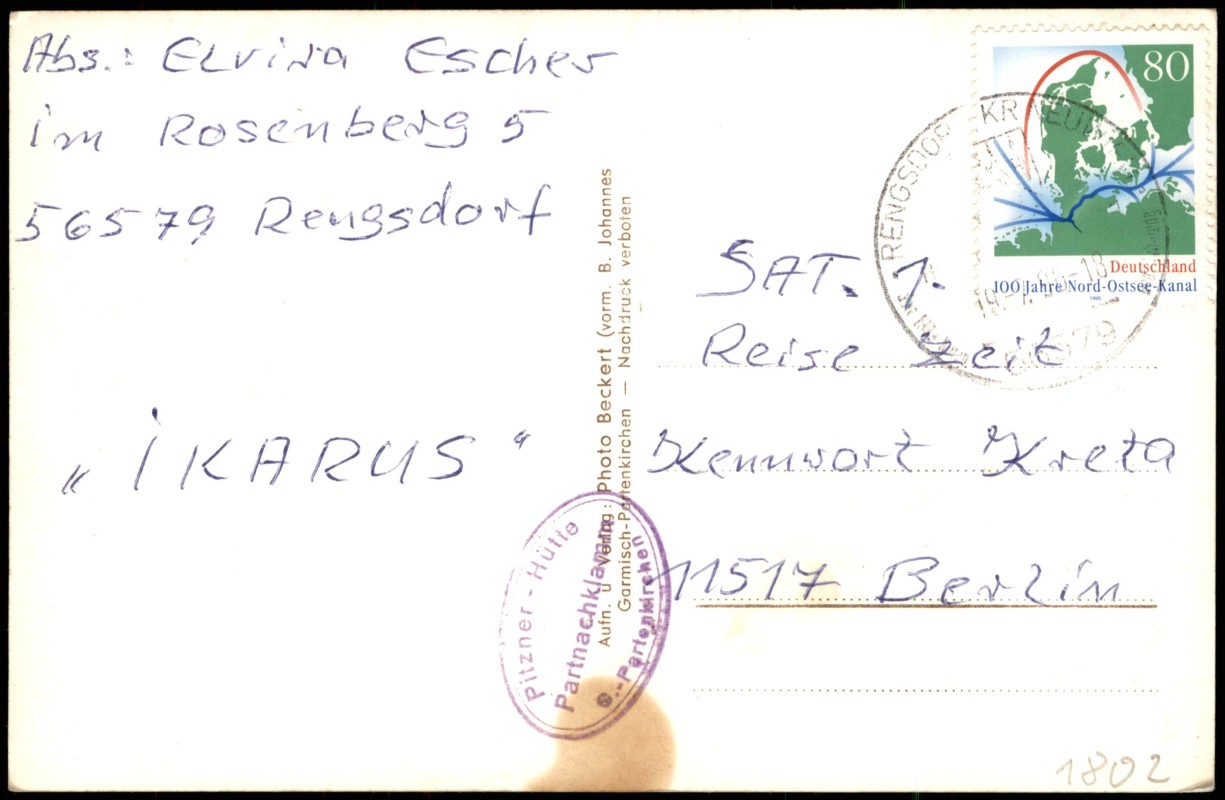 Abs.: Elvira Escher
im Rosenberg 5
56579 Rengsdorf
„IKARUS"
Aufn. u Verlag: Photo Beckert (vorm. B. Johannes
Garmisch-Partenkirchen — Nachdruck verboten
Pitzner-Hütte
Partnachklamm
G.-Partenkirchen
80
Deutschland
100 Jahre Nord-Ostsee-Kanal
1995
RENGSDORF KR NEUW
SAT. 1.
Reise Zeit
Kennwort Kreta
11517 Berlin
1802